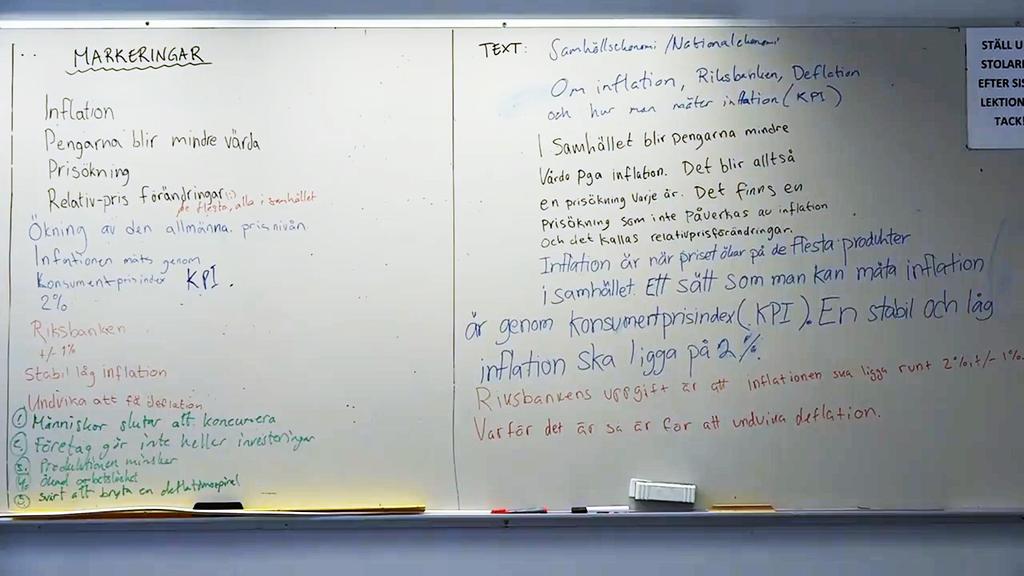 MARKERINGAR
Inflation
Pengarna blir mindre värda
Prisökning
Relativ-pris förändringar
de flesta, alla i samhället
Ökning av den allmänna prisnivån
Infationen mäts genom
Konsumentprisindex KPI.
2%
Riksbanken
+/- 1%
Stabil låg inflation
Undvika att få deflation
1. Människor slutar att koncumera
2. Företag gör inte heller investeringar
3. Produktionen minskar
4. Ökad arbetslöshet
5. svårt att bryta en deflationsspiral
TEXT: Samhällsekonomi /Nationalekonomi
Om inflation, Riksbanken, Deflation
och hur man mäter inflation (KPI)
I Samhället blir pengarna mindre
Värda pga inflation. Det blir alltså
en prisökning varje år. Det finns en
Prisökning som inte Påverkas av inflation
och det kallas relativprisförändringar.
Inflation är när priset ökar på de flesta produkter
i samhället. Ett sätt som man kan mäta inflation
är genom konsumentprisindex (KPI). En stabil och låg
inflation ska ligga på 2%.
Riksbankens uppgift är att inflationen ska ligga runt 2%, +/- 1%.
Varför det är så är för att undvika deflation.
STÄLL U
STOLAR
EFTER SIS
LEKTION
TACK!